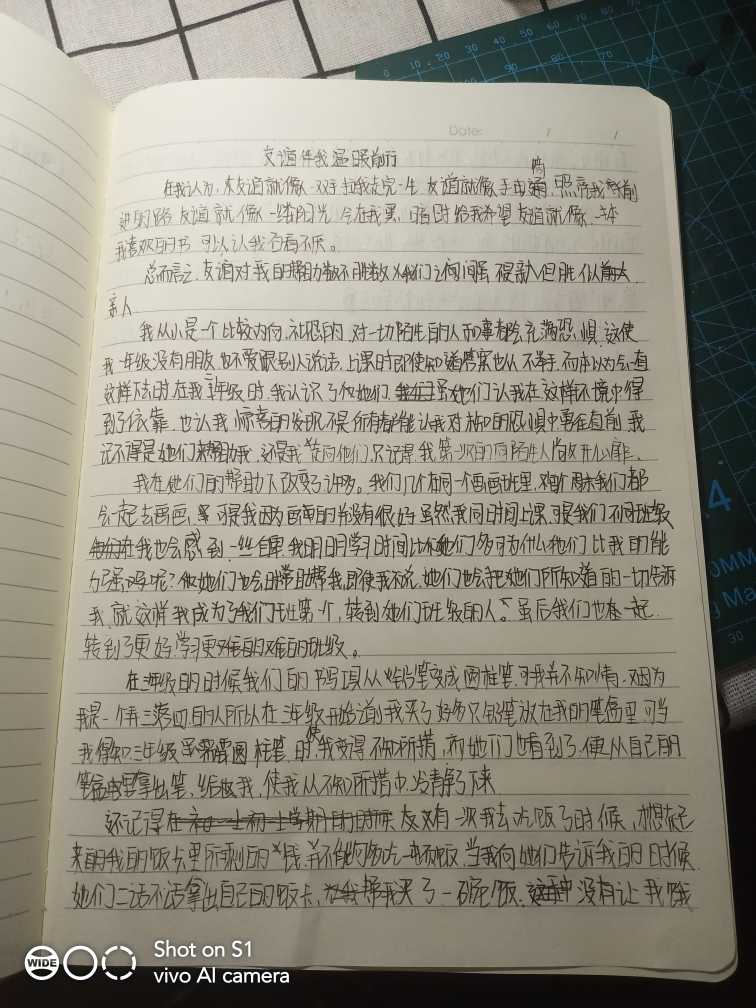 Date: / /
友谊伴我温暖前行
在我认为,友谊就像一双手拉我走完一生,友谊就像手电筒,照亮我前
进的路,友谊就像一缕阳光,会在我黑暗时给我希望,友谊就像一本
我喜欢的书,可以认我百看不厌。
总而言之,友谊对我的帮助数不胜数,我们之间虽不是亲人但胜似
亲人
我从小是一个比较内向,社恐的,对一切陌生的人和事都会充满恐惧,这使
我一年级没有朋友,也不爱跟别人说话,上课时即使知道答案也从不举手,而本以为会一直
这样下去时,在我二年级时,我认识了她们,她们认我在这样环境中得
到了依靠,也认我惊喜的发现,不是所有都能认我对未知的恐惧中勇往直前,我
记不得是她们帮助我,还是我走向他们,只记得,我第一次的向陌生人敞开心扉。
我在她们的帮助下改变了许多。我们几个在同一个画画班里,周末我们都
会一起去画画,可是我画画的并没有很好,虽然我同时间上课,可是我们不同班级
我也会感到一丝自卑,我明明学习时间比她们多,为什么他们比我的能
力强呢?但她们也会帮助我,即使我不说,她们也会把她们所知道的一切告诉
我,就这样我成为了我们班第一个,转到她们班级的人。虽后我们也在一起
转到了更好,学习更难的班级。
在三年级的时候我们的书写从铅笔变成圆柱笔,可我并不知情,因为
我是一个丢三落四的人,所以在三年级开始前,我买了好多只铅笔放在我的笔盒里,当
我得知三年级需使圆柱笔时,我变得不知所措,而她们也看到了,便从自己的
笔盒里拿出笔,给我,使我从不知所措中,冷静了下来
还记得在初一上学期的时候,有一次我去吃饭的时候,才想起
来的我的饭卡里所剩的钱,并不能够吃一顿饭,当我向她们告诉我的时候
她们二话不话拿出自己的饭卡,帮我买了一碗饭,没有让我饿
WIDE
Shot on S1
vivo AI camera